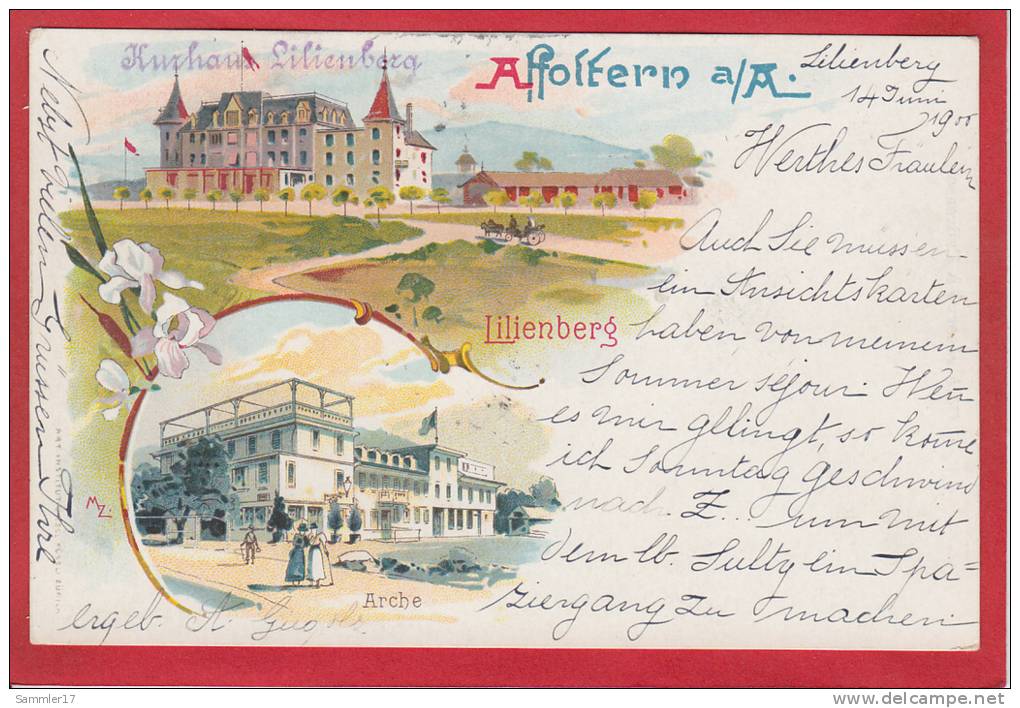 Kurhaus Lilienberg
Affoltern a/A.
Lilienberg
14 Juni
1900
Werthes Fräulein
Auch Sie müssen
ein Ansichtskarten
haben von meinem
Sommer séjour Wen̄
es mir gelingt, so kom̄e
ich Sonntag geschwind
nach Z... um mit
dem lb. Sulty ein Spa=
ziergang zu machen
Nebst vielen Grüssen Ihre
ergeb. A.
Lilienberg
Arche
MZ.
Sammler17
www.delcampe.net